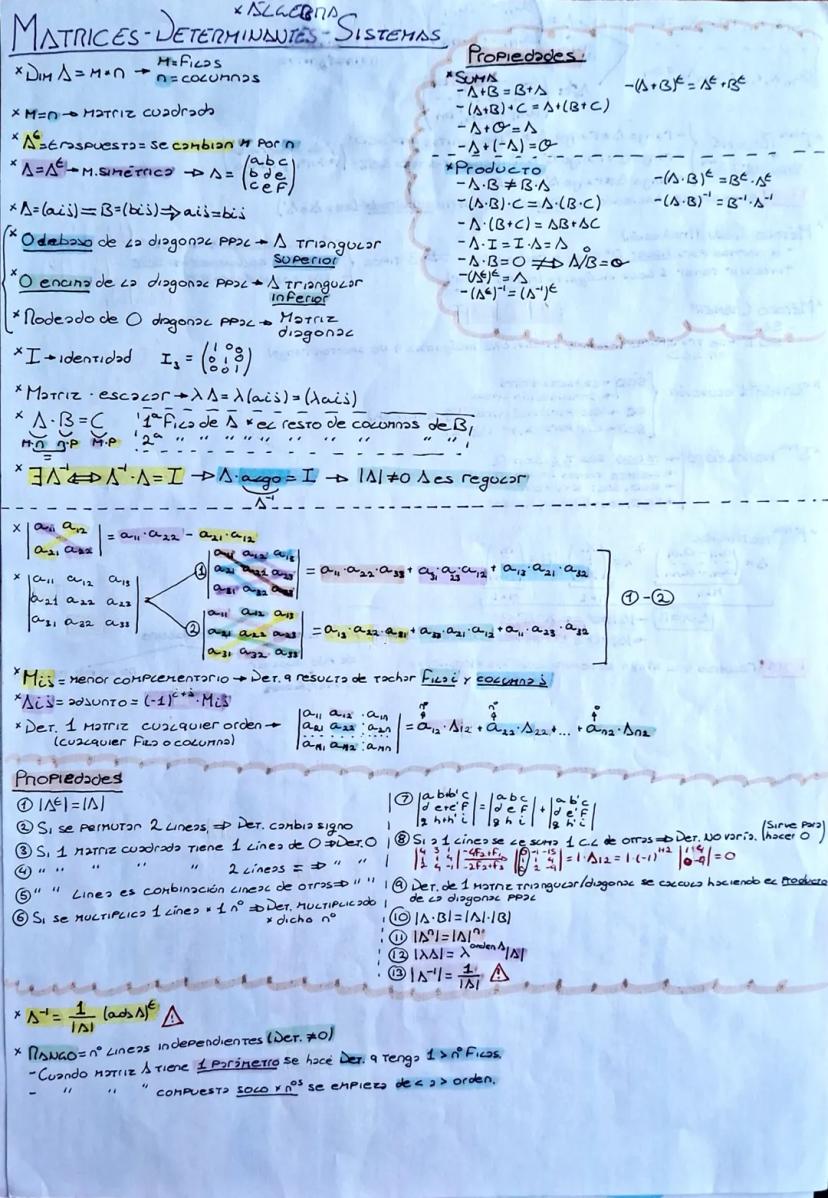 * ALGEBRA
MATRICES-DETERMINANTES-SISTEMAS
* Dim A = m × n → m = filas
n = columnas
* m = n → matriz cuadrada
* Aᵗ = traspuesta = se cambian m por n
* A = Aᵗ → m. simétrica → A = (a b c
b d e
c e f)
* A = (aij) = B = (bij) ⇒ aij = bij
* 0 debajo de la diagonal ppal → A triangular
superior
* 0 encima de la diagonal ppal → A triangular
inferior
* Rodeado de 0 diagonal ppal → Matriz
diagonal
* I → identidad I₃ = (1 0 0
0 1 0
0 0 1)
* Matriz · escalar → λA = λ(aij) = (λaij)
* A · B = C 1ª fila de A * el resto de columnas de B,
m·n n·p m·p 2ª " " " " " " " " "
=
* ∃A⁻¹ ⇔ A⁻¹ · A = I → A · algo = I → |A| ≠ 0 A es regular
A⁻¹
Propiedades:
* Suma
- A+B = B+A - (A+B)ᵗ = Aᵗ + Bᵗ
- (A+B)+C = A+(B+C)
- A+O = A
- A+(-A) = O
* Producto
- A·B ≠ B·A - (A·B)ᵗ = Bᵗ·Aᵗ
- (A·B)·C = A·(B·C) - (A·B)⁻¹ = B⁻¹·A⁻¹
- A·(B+C) = AB+AC
- A·I = I·A = A
- A·B = O ⇏ A/B = O
- (Aᵗ)ᵗ = A
- (Aᵗ)⁻¹ = (A⁻¹)ᵗ
* |a₁₁ a₁₂
a₂₁ a₂₂| = a₁₁·a₂₂ - a₂₁·a₁₂
* |a₁₁ a₁₂ a₁₃
a₂₁ a₂₂ a₂₃
a₃₁ a₃₂ a₃₃|
① |a₁₁ a₁₂ a₁₃
a₂₁ a₂₂ a₂₃
a₃₁ a₃₂ a₃₃| = a₁₁·a₂₂·a₃₃ + a₃₁·a₂₃·a₁₂ + a₁₃·a₂₁·a₃₂
② |a₁₁ a₁₂ a₁₃
a₂₁ a₂₂ a₂₃
a₃₁ a₃₂ a₃₃| = a₁₃·a₂₂·a₃₁ + a₃₃·a₂₁·a₁₂ + a₁₁·a₂₃·a₃₂
① - ②
* Mij = menor complementario → Det. q resulta de tachar fila i y columna j
* Aij = adjunto = (-1)ⁱ⁺ʲ · Mij
* Det. 1 matriz cualquier orden → |a₁₁ a₁₂ . a₁ₙ
(cualquier fila o columna) a₂₁ a₂₂ . a₂ₙ
aₙ₁ aₙ₂ ... aₙₙ| = a₁₂·A₁₂ + a₂₂·A₂₂ + ... + aₙ₂·Aₙ₂
nº nº
Propiedades
① |Aᵗ| = |A|
② Si se permutan 2 líneas, ⇒ Det. cambia signo
③ Si 1 matriz cuadrada tiene 1 línea de 0 ⇒ Det. 0
④ " " " " 2 líneas = ⇒ " "
⑤ " " línea es combinación lineal de otras ⇒ " "
⑥ Si se multiplica 1 línea * 1 nº ⇒ Det. multiplicado
* dicho nº
⑦ |a b+b' c
d e+e' f
g h+h' i| = |a b c
d e f
g h i| + |a b' c
d e' f
g h' i|
⑧ Si a 1 línea se le suma 1 C.L de otras ⇒ Det. no varía. (Sirve para
hacer 0)
= 1·A₁₂ = 1·(-1)¹⁺² = 0
⑨ Det. de 1 matriz triangular/diagonal se calcula haciendo el producto
de la diagonal ppal
⑩ |A·B| = |A|·|B|
⑪ |Aⁿ| = |A|ⁿ
⑫ |λA| = λ^orden A |A|
⑬ |A⁻¹| = 1/|A| ⚠
* A⁻¹ = 1/|A| (adj A)ᵗ ⚠
* Rango = nº líneas independientes (Det. ≠ 0)
- Cuando matriz A tiene 1 parámetro se hace Det. q tenga 1 > nº filas.
- " " " compuesta solo x nᵒˢ se empieza de < a > orden.